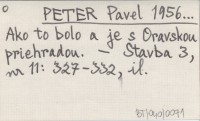 PETER Pavel 1956...
Ako to bolo a je s Oravskou
priehradou. – Stavba 3,
nr 11: 327-332, il.
BT/90/0071